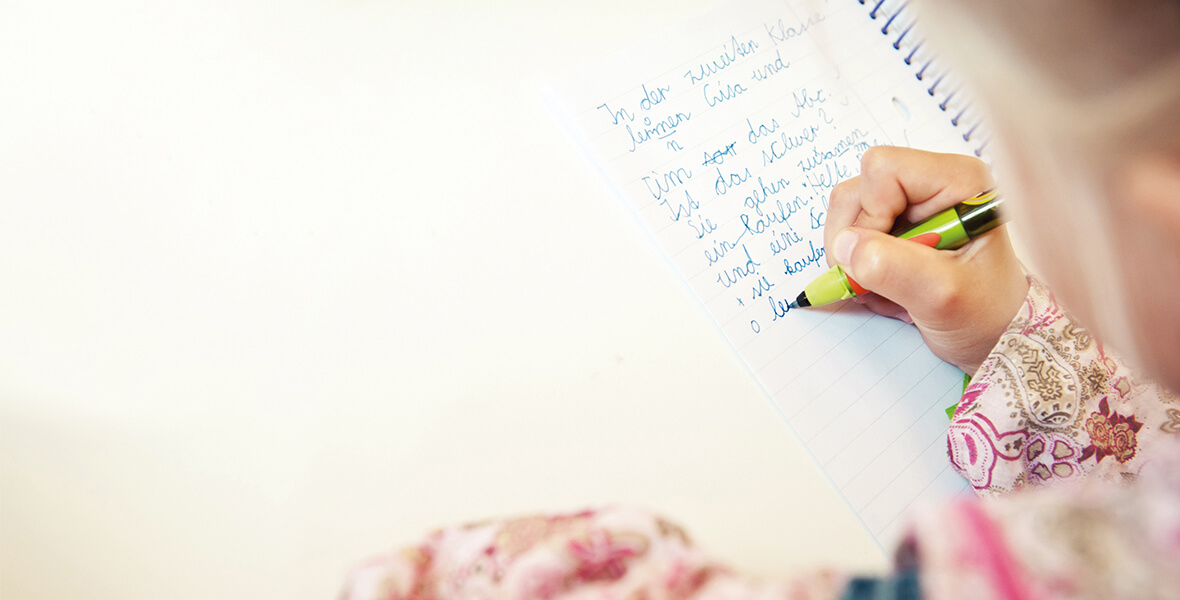 In der zweiten Klasse
lernnen Gisa und
n
Tim das Abc.
Ist das schwer?
Sie gehen zusamen
ein kaufen. Hefte
und eine
x sie kaufen
o